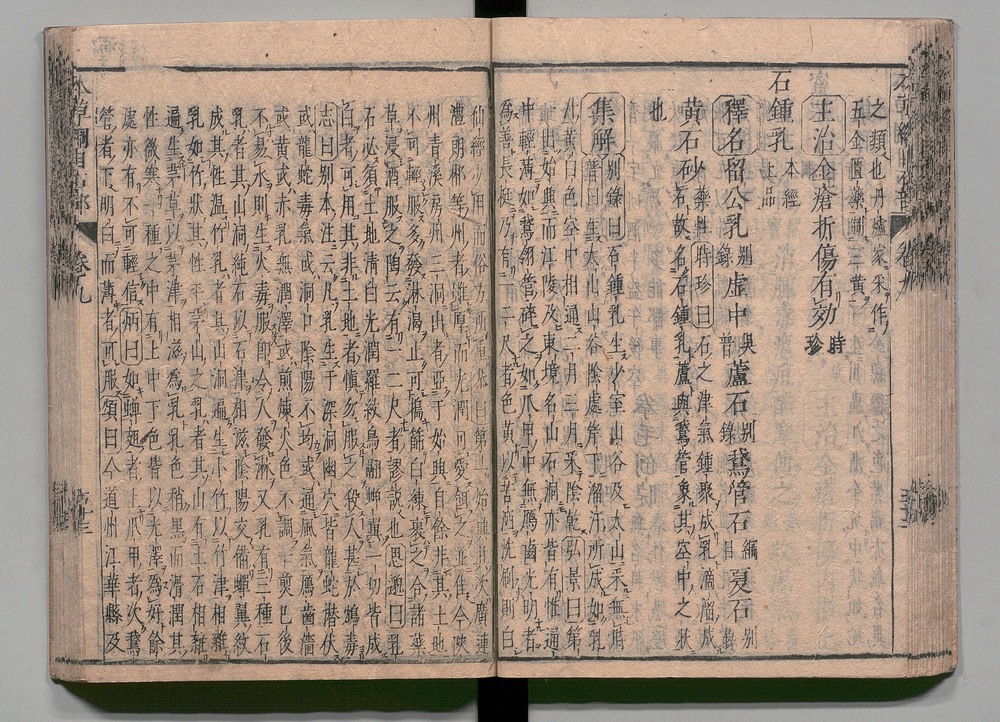 之類也丹爐家采作
五金匱藥制三黃
主治金瘡折傷有効時珍
石鍾乳本經上品
釋名留公乳別錄虛中吳普蘆石別錄鵞管石綱目夏石別錄
黃石砂藥性時珍曰石之津氣鍾聚成乳滴溜成
石故名石鍾乳蘆與鵞管象其空中之狀
也
集解別錄曰石鍾乳生少室山谷及太山采無時
普曰生太山山谷陰處岸下溜汁所成如乳
汁黃白色空中相通二月三月采陰乾弘景曰第
一出始興而江陵及東境名山石洞亦皆有惟通
中輕薄如鵞翎管碎之如爪甲中無鴈齒光明者
為善長挺乃有一二尺者色黃以苦酒洗刷則白
仙經少用而俗方所重恭曰第一始興其次廣連
澧朗郴等州者雖厚而光潤可愛餌之並佳今峽
州青溪房州三洞出者亞于始興自餘非其土地
不可輕服多發淋渴止可擣篩白練裹之合諸藥
草浸酒服之陶云有一二尺者謬說也思邈曰乳
石必須土地清白光潤羅紋鳥翮蟬翼一切皆成
白者可用其非土地者慎勿服之殺人甚於鴆毒
志曰別本注云凡乳生于深洞幽穴皆龍蛇潛伏
或龍蛇毒氣或洞口陰陽不均或通風氣鴈齒濇
或黃或赤乳無潤澤或煎煉火色不調一煎已後
不易水則生火毒服即令人發淋又乳有三種石
乳者其山洞純石以石津相滋陰陽交備蟬翼紋
成其性温竹乳者其山洞遍生小竹以竹津相雜
乳如竹狀其性平茅山之乳者其山有土石相雜
遍生茅草以茅津相滋為乳乳色稍黑而滑潤其
性微寒一種之中有上中下色皆以光澤為好餘
處亦有不可輕信炳曰如蟬翅者上爪甲者次鵞
管者下明白而薄者可服頌曰今道州江華縣及